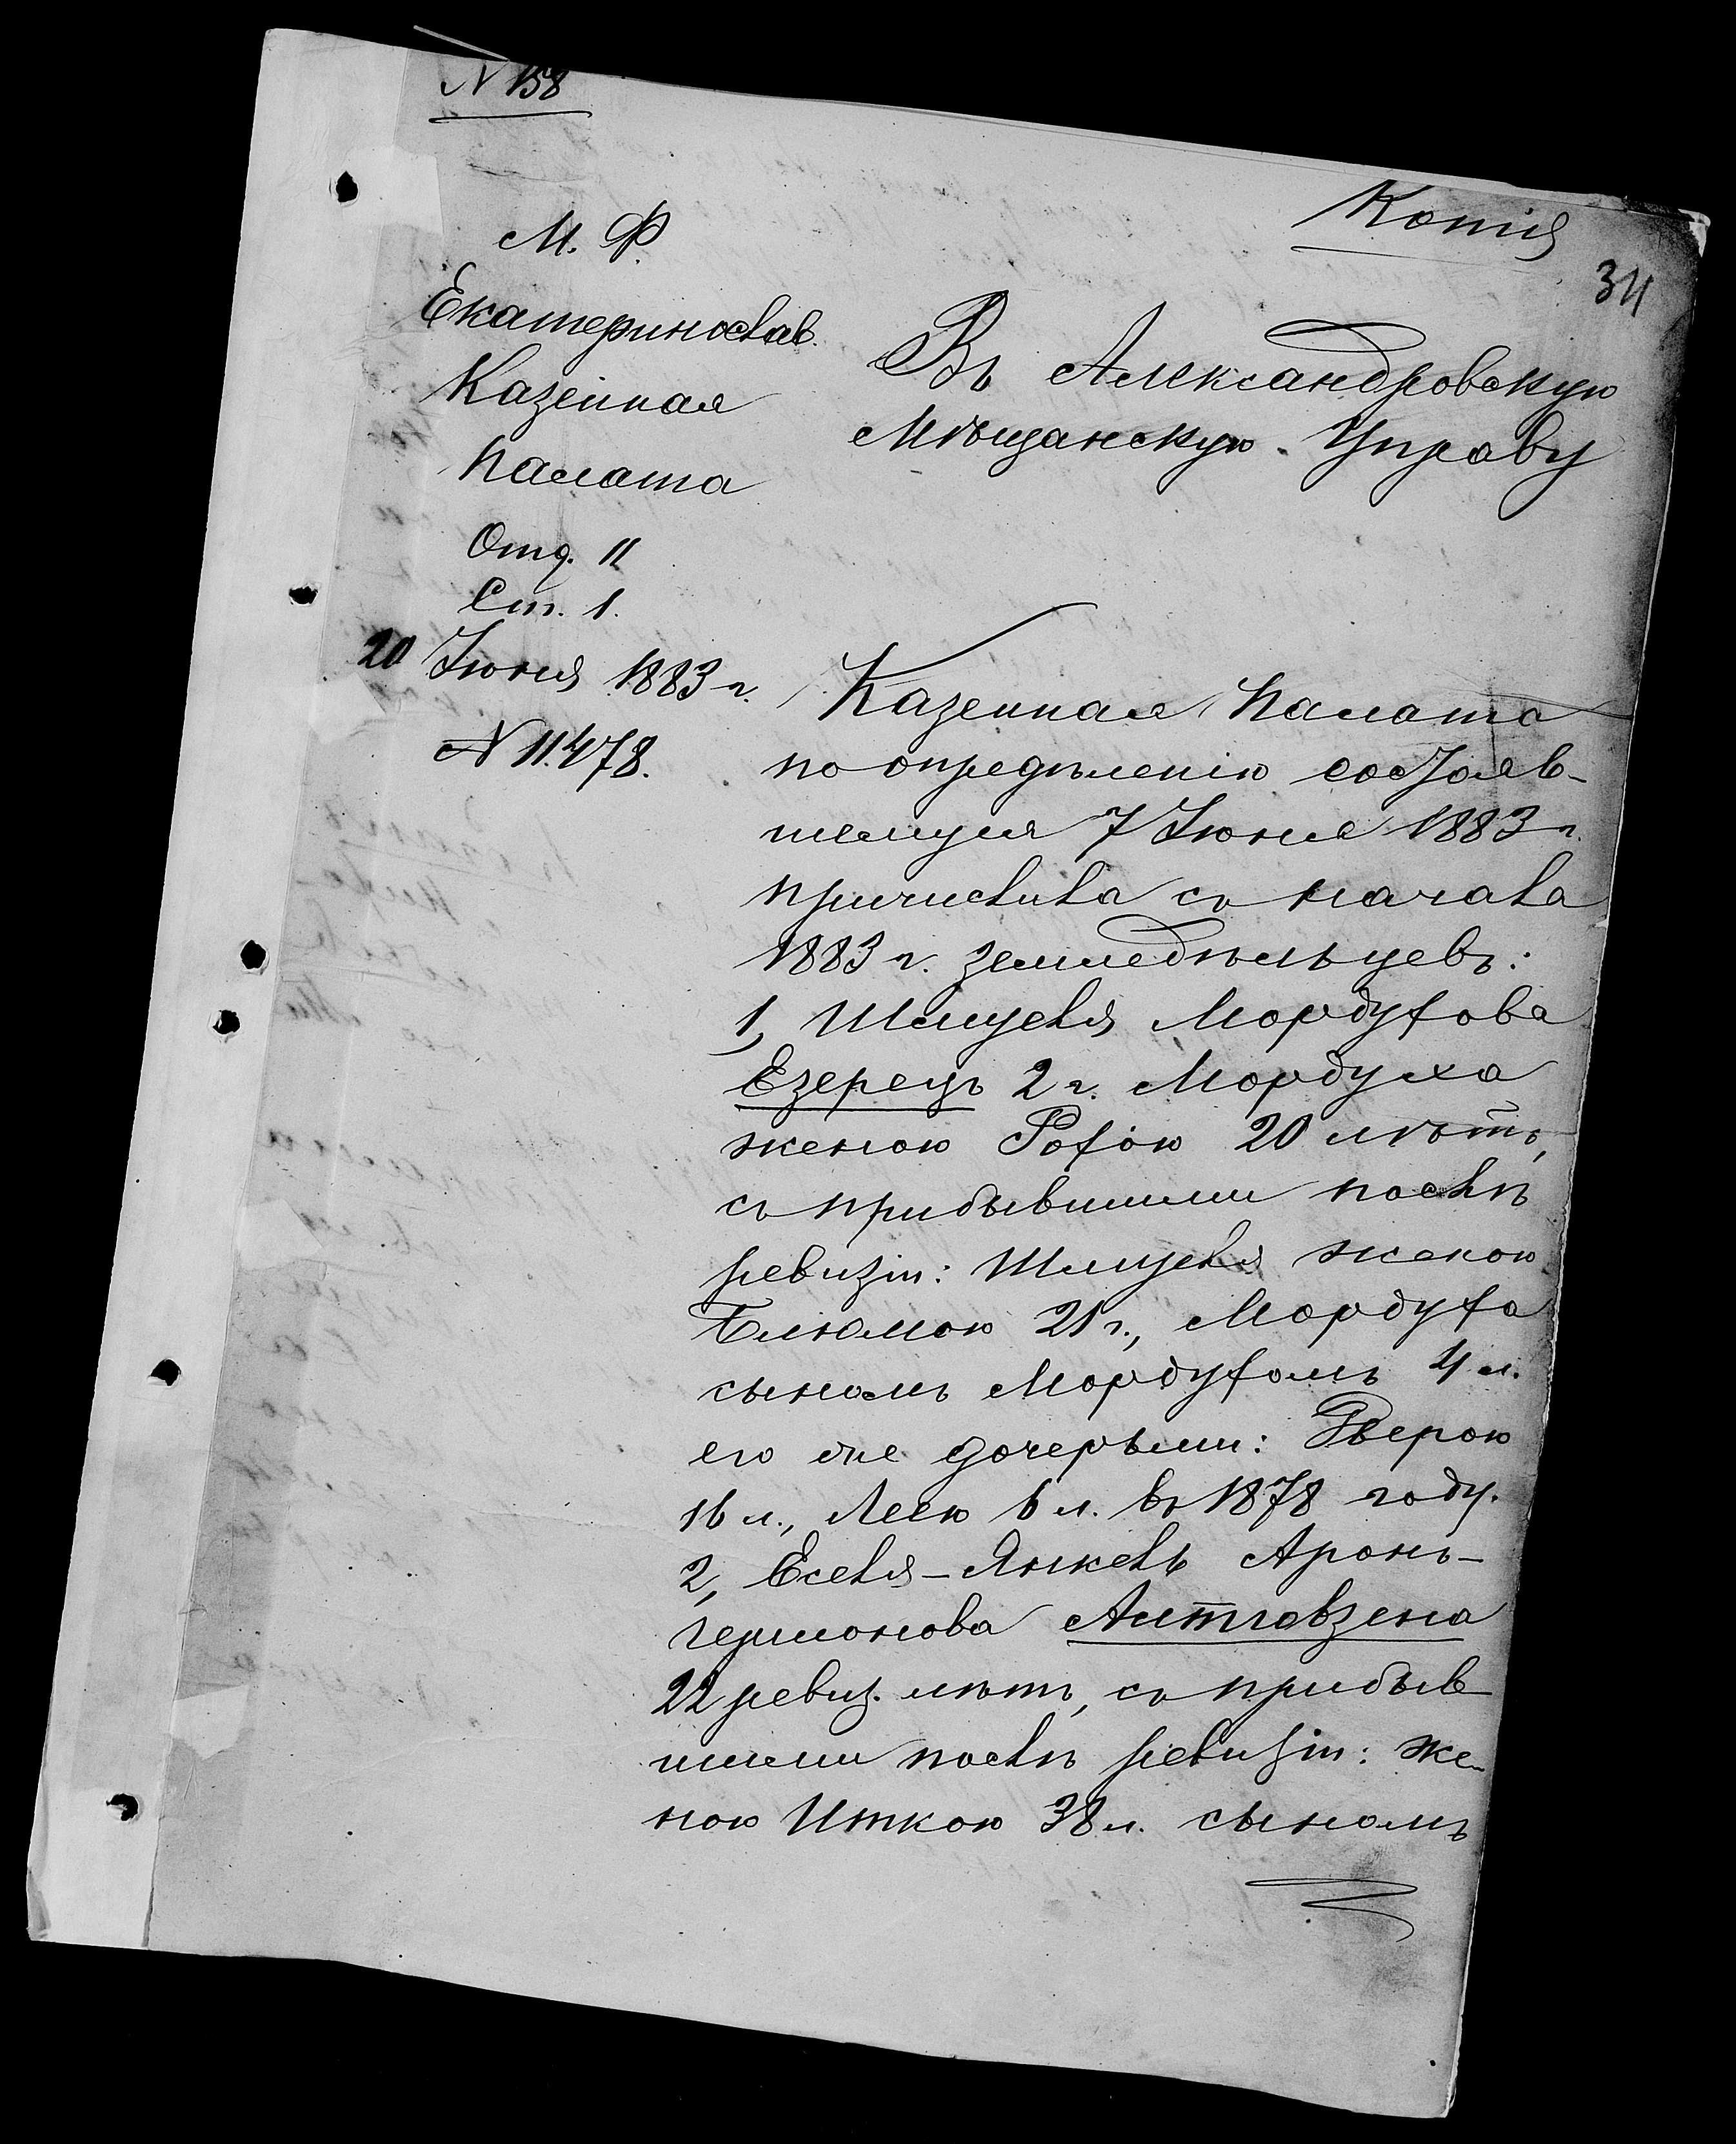 N 158
Копія
34
М. Ф.
Екатеринослав.
Казенная
Палата
Отд. II
Ст. 1.
20 Іюня 1883 г.
N 11478.
Въ Александровскую
Мѣщанскую Управу
Казенная Палата
по опредѣленію состояв-
шемуся 7 Іюня 1883 г.
причислила съ начала
1883 г. земледѣльцевъ:
1, Шмуеля Мордухова
Езерецъ 2 г. Мордуха
женою Рохою 20 лѣтъ,
съ прибывшими послѣ
ревизіи: Шмуеля женою
Блюмою 21 г., Мордуха
сыномъ Мордухомъ 4 л.
его же дочерьми: Дверою
16 л., Леею 6 л. въ 1878 году.
2, Еселя-Янкель Аронъ-
Германова Альтгавзена
22 ревиз. лѣтъ, съ прибыв
шими послѣ ревизіи: же-
ною Иткою 38 л. сыномъ